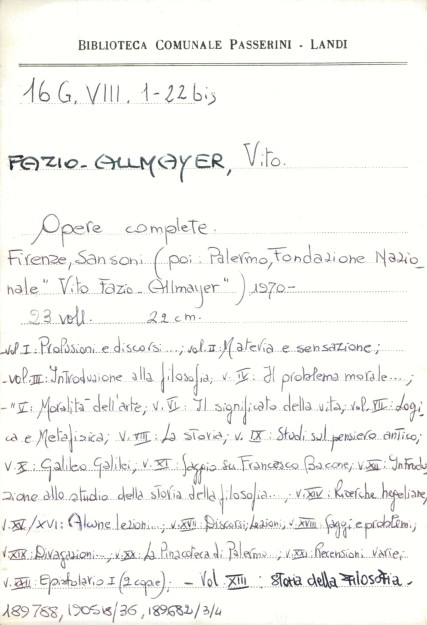 BIBLIOTECA COMUNALE PASSERINI - LANDI
16 G. VIII. 1-22 bis
FAZIO-ALLMAYER, Vito.
Opere complete.
Firenze, Sansoni (poi: Palermo, Fondazione Nazio_
nale "Vito Fazio-Allmayer") 1970-
23 voll. 22 cm.
vol I: Prolusioni e discorsi...; vol. II: Materia e sensazione;
-vol. III: Introduzione alla filosofia; v. IV: Il problema morale...;
-"V: Moralità dell'arte; v. VI: Il significato della vita; vol. VII: Logi_
ca e Metafisica; v. VIII: La storia; v. IX: Studi sul pensiero antico;
v. X: Galileo Galilei; v. XI: Saggio su Francesco Bacone; v. XII: Introdu_
zione allo studio della storia della filosofia...; v. XIV: Ricerche hegeliane;
v. XV/XVI: Alcune lezioni...; v. XVII: Discorsi; Lezioni; v. XVIII: Saggi e problemi;
v. XIX: Divagazioni...; v. XX: La Pinacoteca di Palermo...; v. XXI: Recensioni varie;
v. XXII: Epistolario I (2 copie); - Vol. XIII: Storia della Filosofia.
189788, 190518/36, 189682/3/4